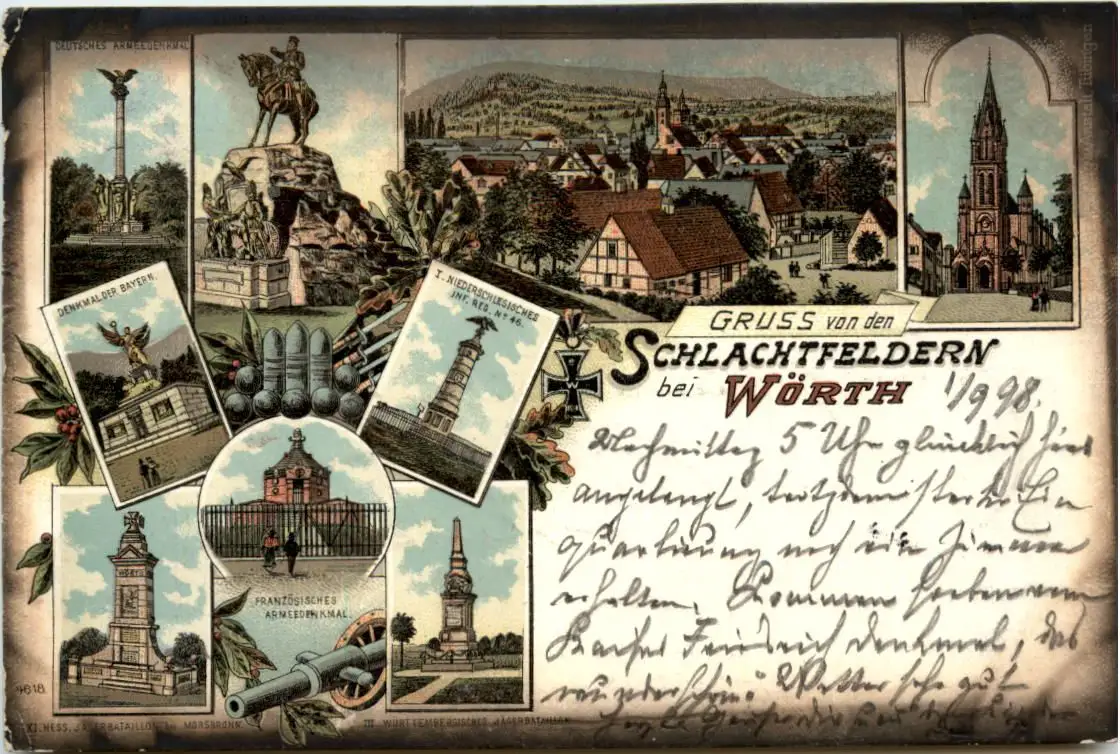 DEUTSCHES ARMEEDENKMAL
DENKMAL DER BAYERN.
I. NIEDERSCHLESISCHES
INF. REG. Nº 46.
GRUSS von den
SCHLACHTFELDERN
bei WÖRTH
W
1/9 98.
Nachmittag 5 Uhr glücklich hier
angelangt, trotzdem starke Ein
quartirung noch ein Zimmer
erhalten. Kommen soeben vom
Kaiser Friedrich Denkmal, das
wunderschön! Wetter sehr gut
FRANZÖSISCHES
ARMEEDENKMAL.
4618
XI. HESS. JÄGERBATAILLON MORSBRONN.
III WÜRTTEMBERGISCHES JÄGERBATAILLON